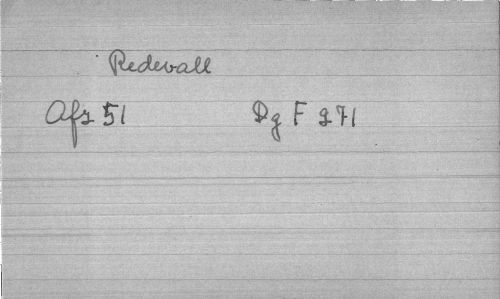 Redevall
Afz 51 Dg F 271